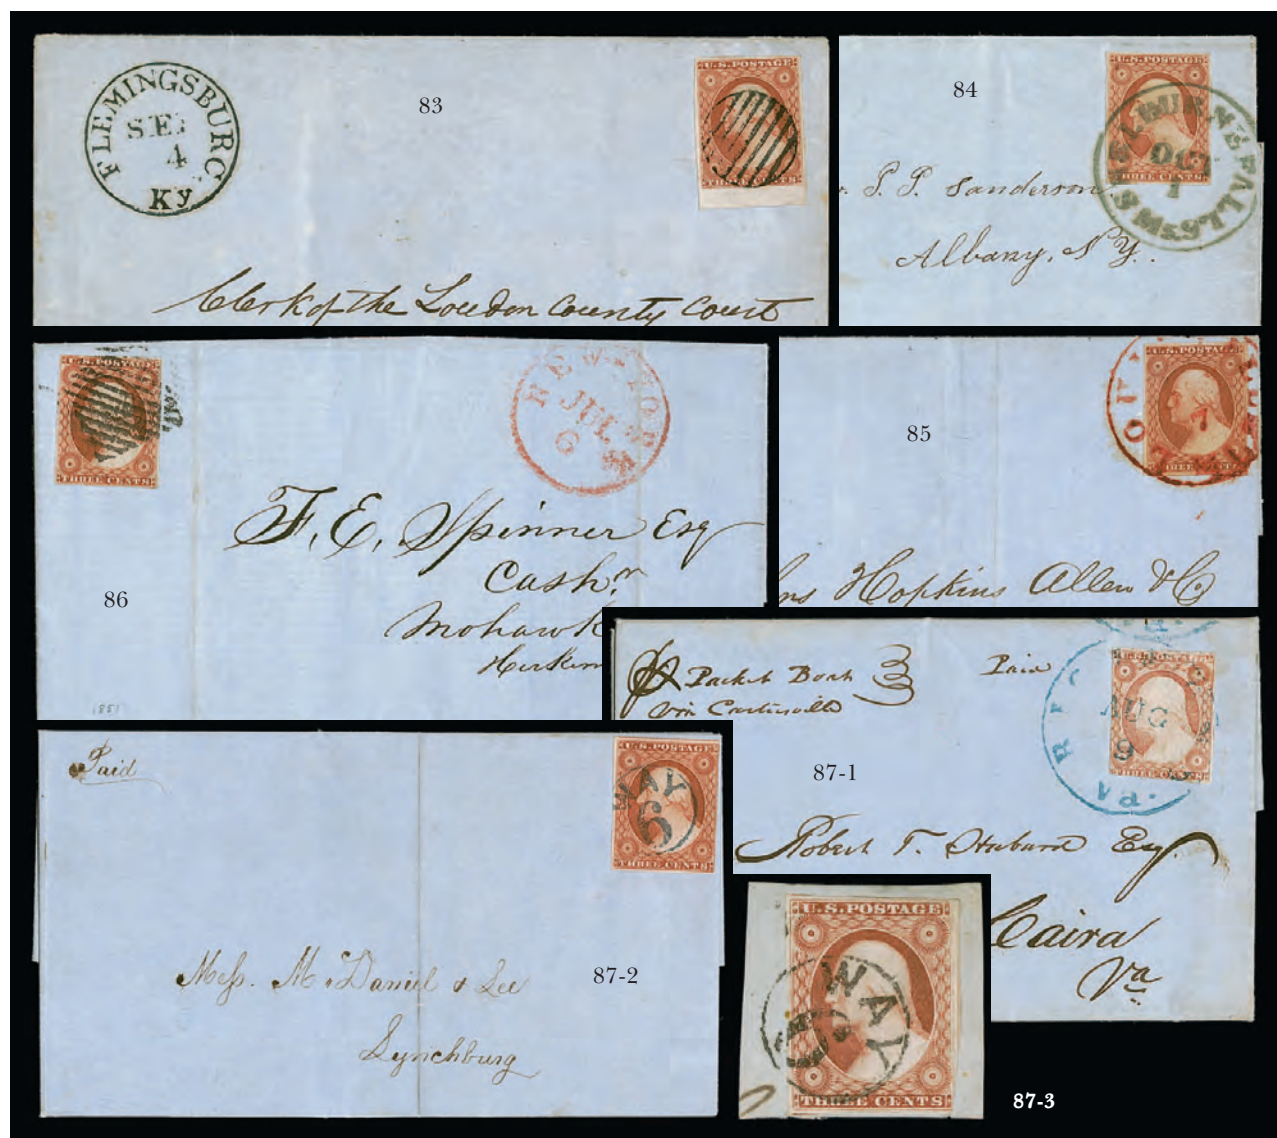 83
FLEMINGSBURG
SEP
4
Ky
U.S. POSTAGE
THREE CENTS
Clerk of the Loudon County Court
84
U.S. POSTAGE
THREE CENTS
OCT
1
P. P. Sanderson
Albany, N Y.
86
U.S. POSTAGE
THREE CENTS
NEW-YORK
JUL
6
F. E. Spinner Esq
Cashr.
Mohawk
Herkim
1851
85
U.S. POSTAGE
THREE CENTS
7
Hopkins Allen & Co
87-1
Packet Boat
Via Cartersville
3
Paid
AUG
9
Va.
THREE CENTS
Robert T. Hubard Esq.
Caira
Va
87-2
Paid
U.S. POSTAGE
WAY
6
THREE CENTS
Mess. McDaniel & Lee
Lynchburg
87-3
U.S. POSTAGE
WAY
THREE CENTS